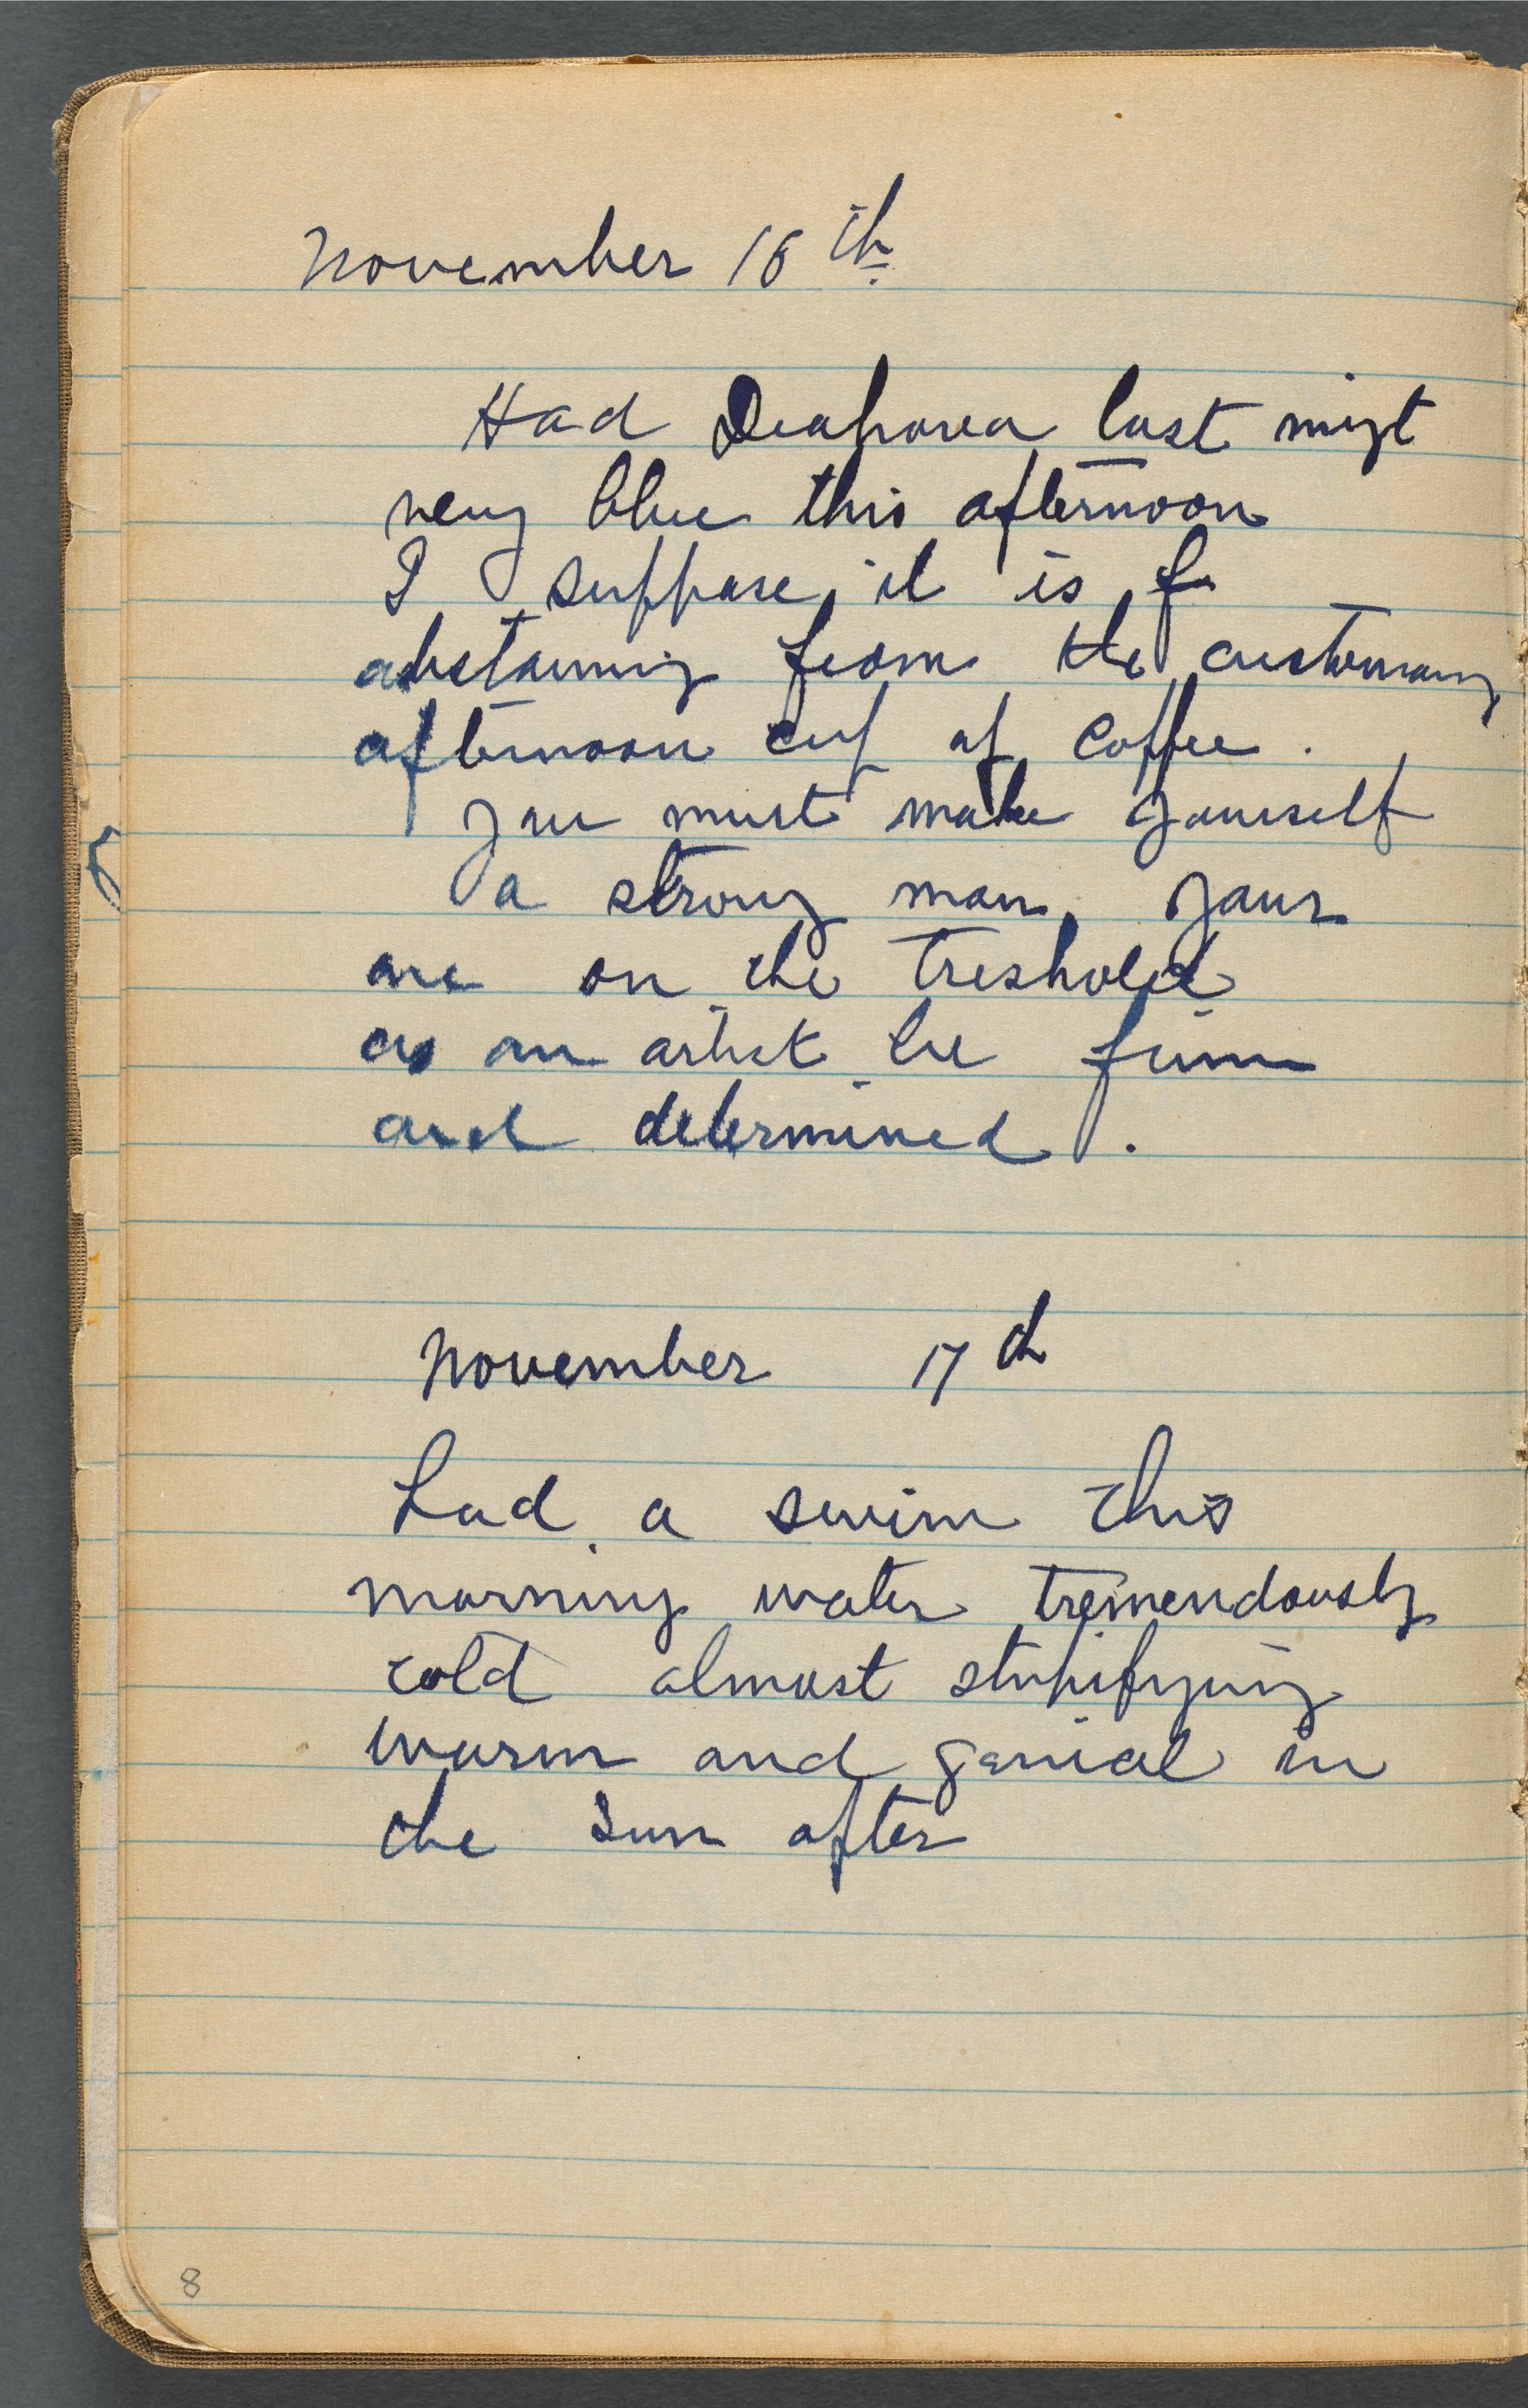 November 16th
Had Deahorea last nigt
very blue this afternoon
I suppose it is f
abstaining from the customary
afternoon cup of coffee.
you must make yourself
a strong man, your
are on the treshold
as an artist be firm
and determined.
November 17th
had a swim this
morning water tremendously
cold almost stupifying
warm and genial in
the sun after
8